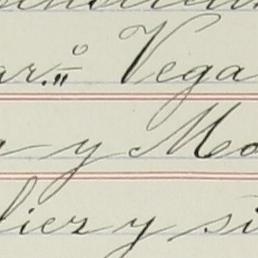 ar.º Vega
a y Mo
diez y si